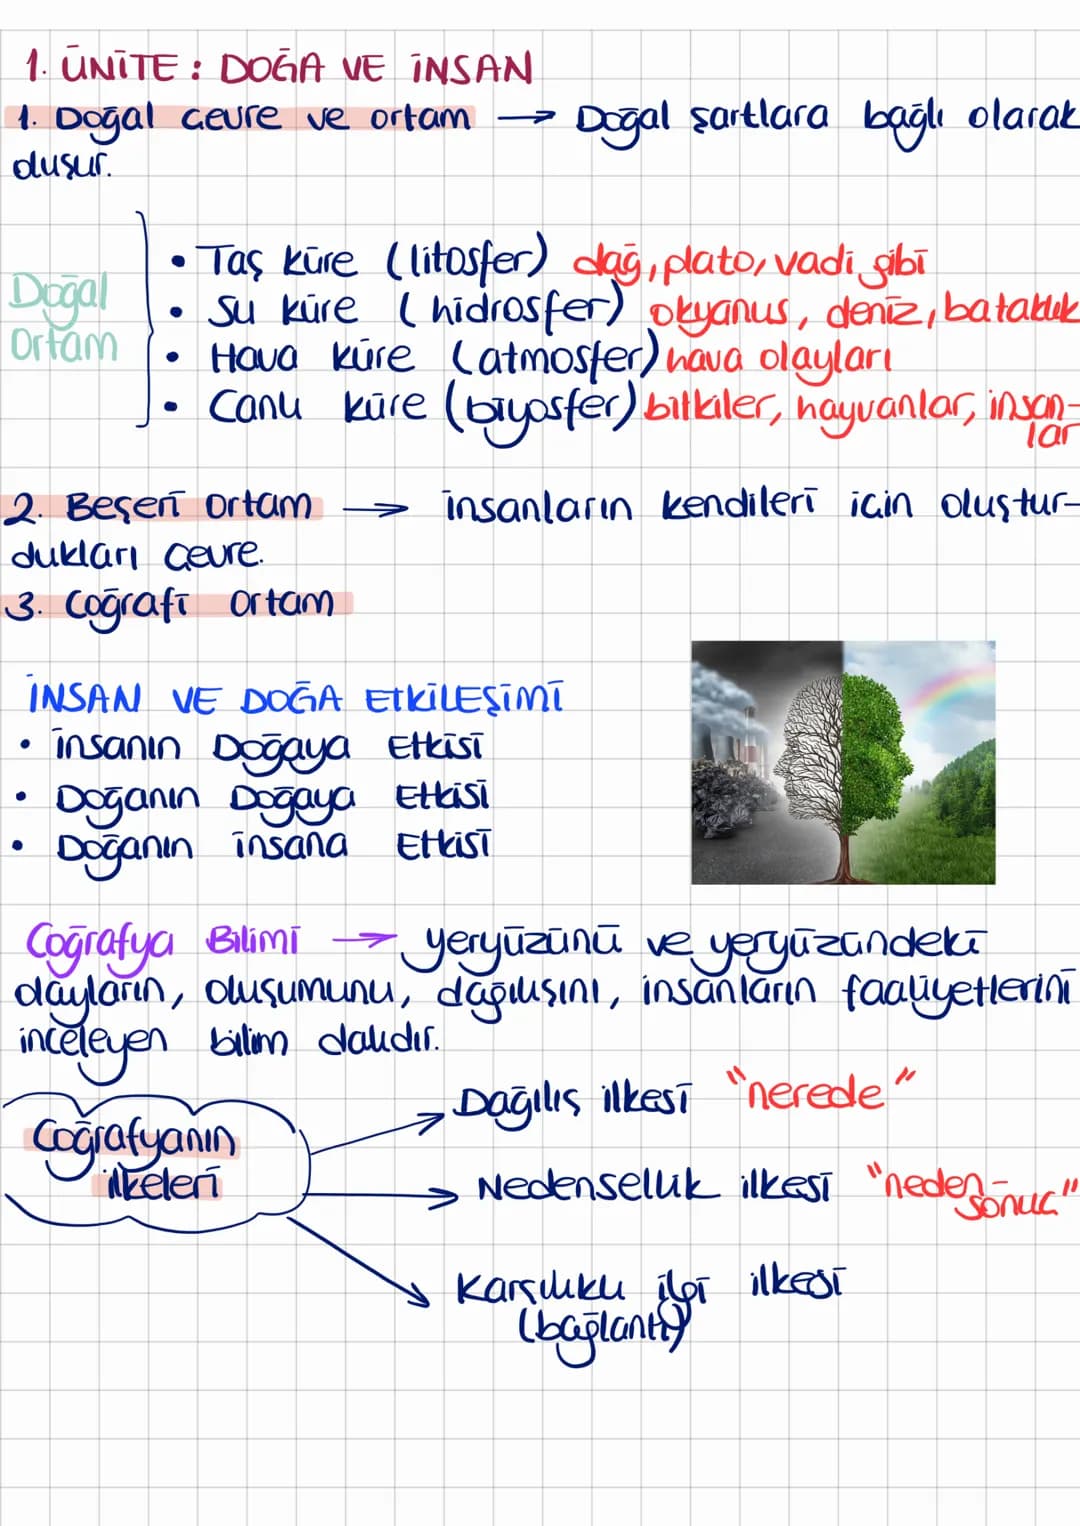 1. ÜNİTE : DOĞA VE İNSAN
1. Doğal çevre ve ortam → Doğal şartlara bağlı olarak
oluşur.
Doğal
Ortam
• Taş küre (litosfer) dağ, plato, vadi gibi
• Su küre (hidrosfer) okyanus, deniz, bataklık
• Hava küre (atmosfer) hava olayları
• Canlı küre (biyosfer) bitkiler, hayvanlar, insan-
lar
2. Beşeri Ortam → insanların kendileri için oluştur-
dukları çevre.
3. Coğrafi Ortam
İNSAN VE DOĞA ETKİLEŞİMİ
• insanın Doğaya Etkisi
• Doğanın Doğaya Etkisi
• Doğanın insana Etkisi
Coğrafya Bilimi → yeryüzünü ve yeryüzündeki
olayların, oluşumunu, dağılışını, insanların faaliyetlerini
inceleyen bilim dalıdır.
Coğrafyanın
ilkeleri
Dağılış ilkesi "nerede"
Nedensellik ilkesi "neden-
sonuç"
Karşılıklı ilgi ilkesi
(bağlantı)